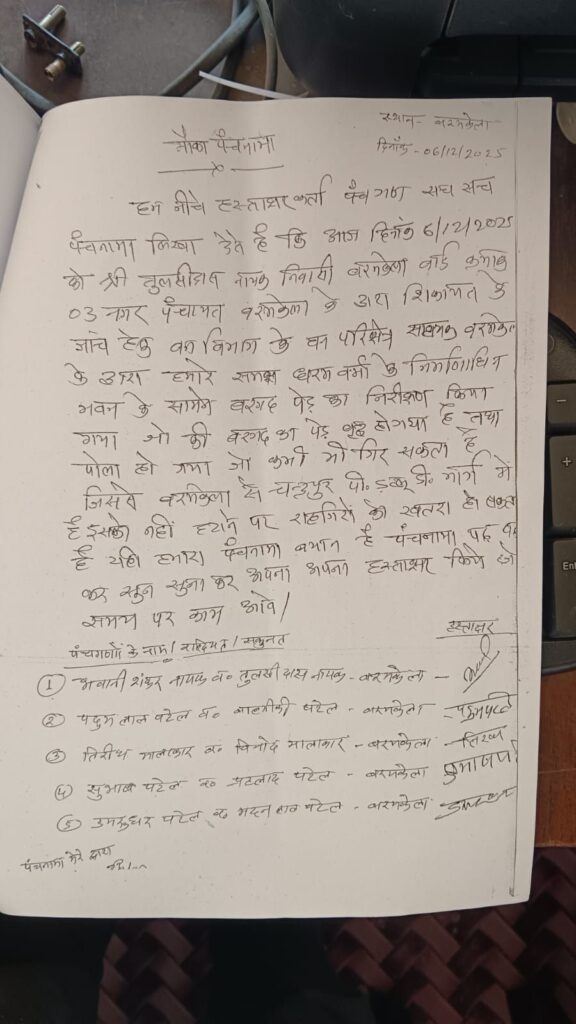 स्थान - बरमकेला
मौका पंचनामा
दिनाँक - 06/12/2025
हम नीचे हस्ताक्षर कर्ता पंचगण सच सच
पंचनामा लिखा देते है कि आज दिनांक 6/12/2025
को श्री तुलसीदास नायक निवासी बरमकेला वार्ड क्रमांक
03 नगर पंचायत बरमकेला के द्वारा शिकायत के
जांच हेतु वन विभाग के वन परिक्षेत्र सहायक बरमकेला
के द्वारा हमारे समक्ष धरम वर्मा के निर्माणाधिन
भवन के सामने बरगद पेड़ का निरीक्षण किया
गया जो की बरगद का पेड़ वृद्ध हो गया है तथा
पोला हो गया जो कभी भी गिर सकता है
जिससे बरमकेला से चन्द्रपुर पी. डब्लू. डी. मार्ग में
है इसको नहीं हटाने पर राहगिरों को खतरा हो सकता
है यही हमारा पंचनामा बयान है पंचनामा पढ़
कर सुन सुना कर अपना अपना हस्ताक्षर किये जो
समय पर काम आवे।
पंचगणों के नाम / वल्दियत / सकुनत हस्ताक्षर
① भवानी शंकर नायक व० तुलसी दास नायक - बरमकेला -
② पदुम लाल पटेल व० बाल्मीकी पटेल - बरमकेला -
③ तिरीथ मालाकार व० विनोद मालाकार - बरमकेला -
④ सुभाष पटेल व० प्रहलाद पटेल - बरमकेला
⑤ उमरुधर पटेल व० मदन लाल पटेल - बरमकेला
पंचनामा मेरे द्वारा